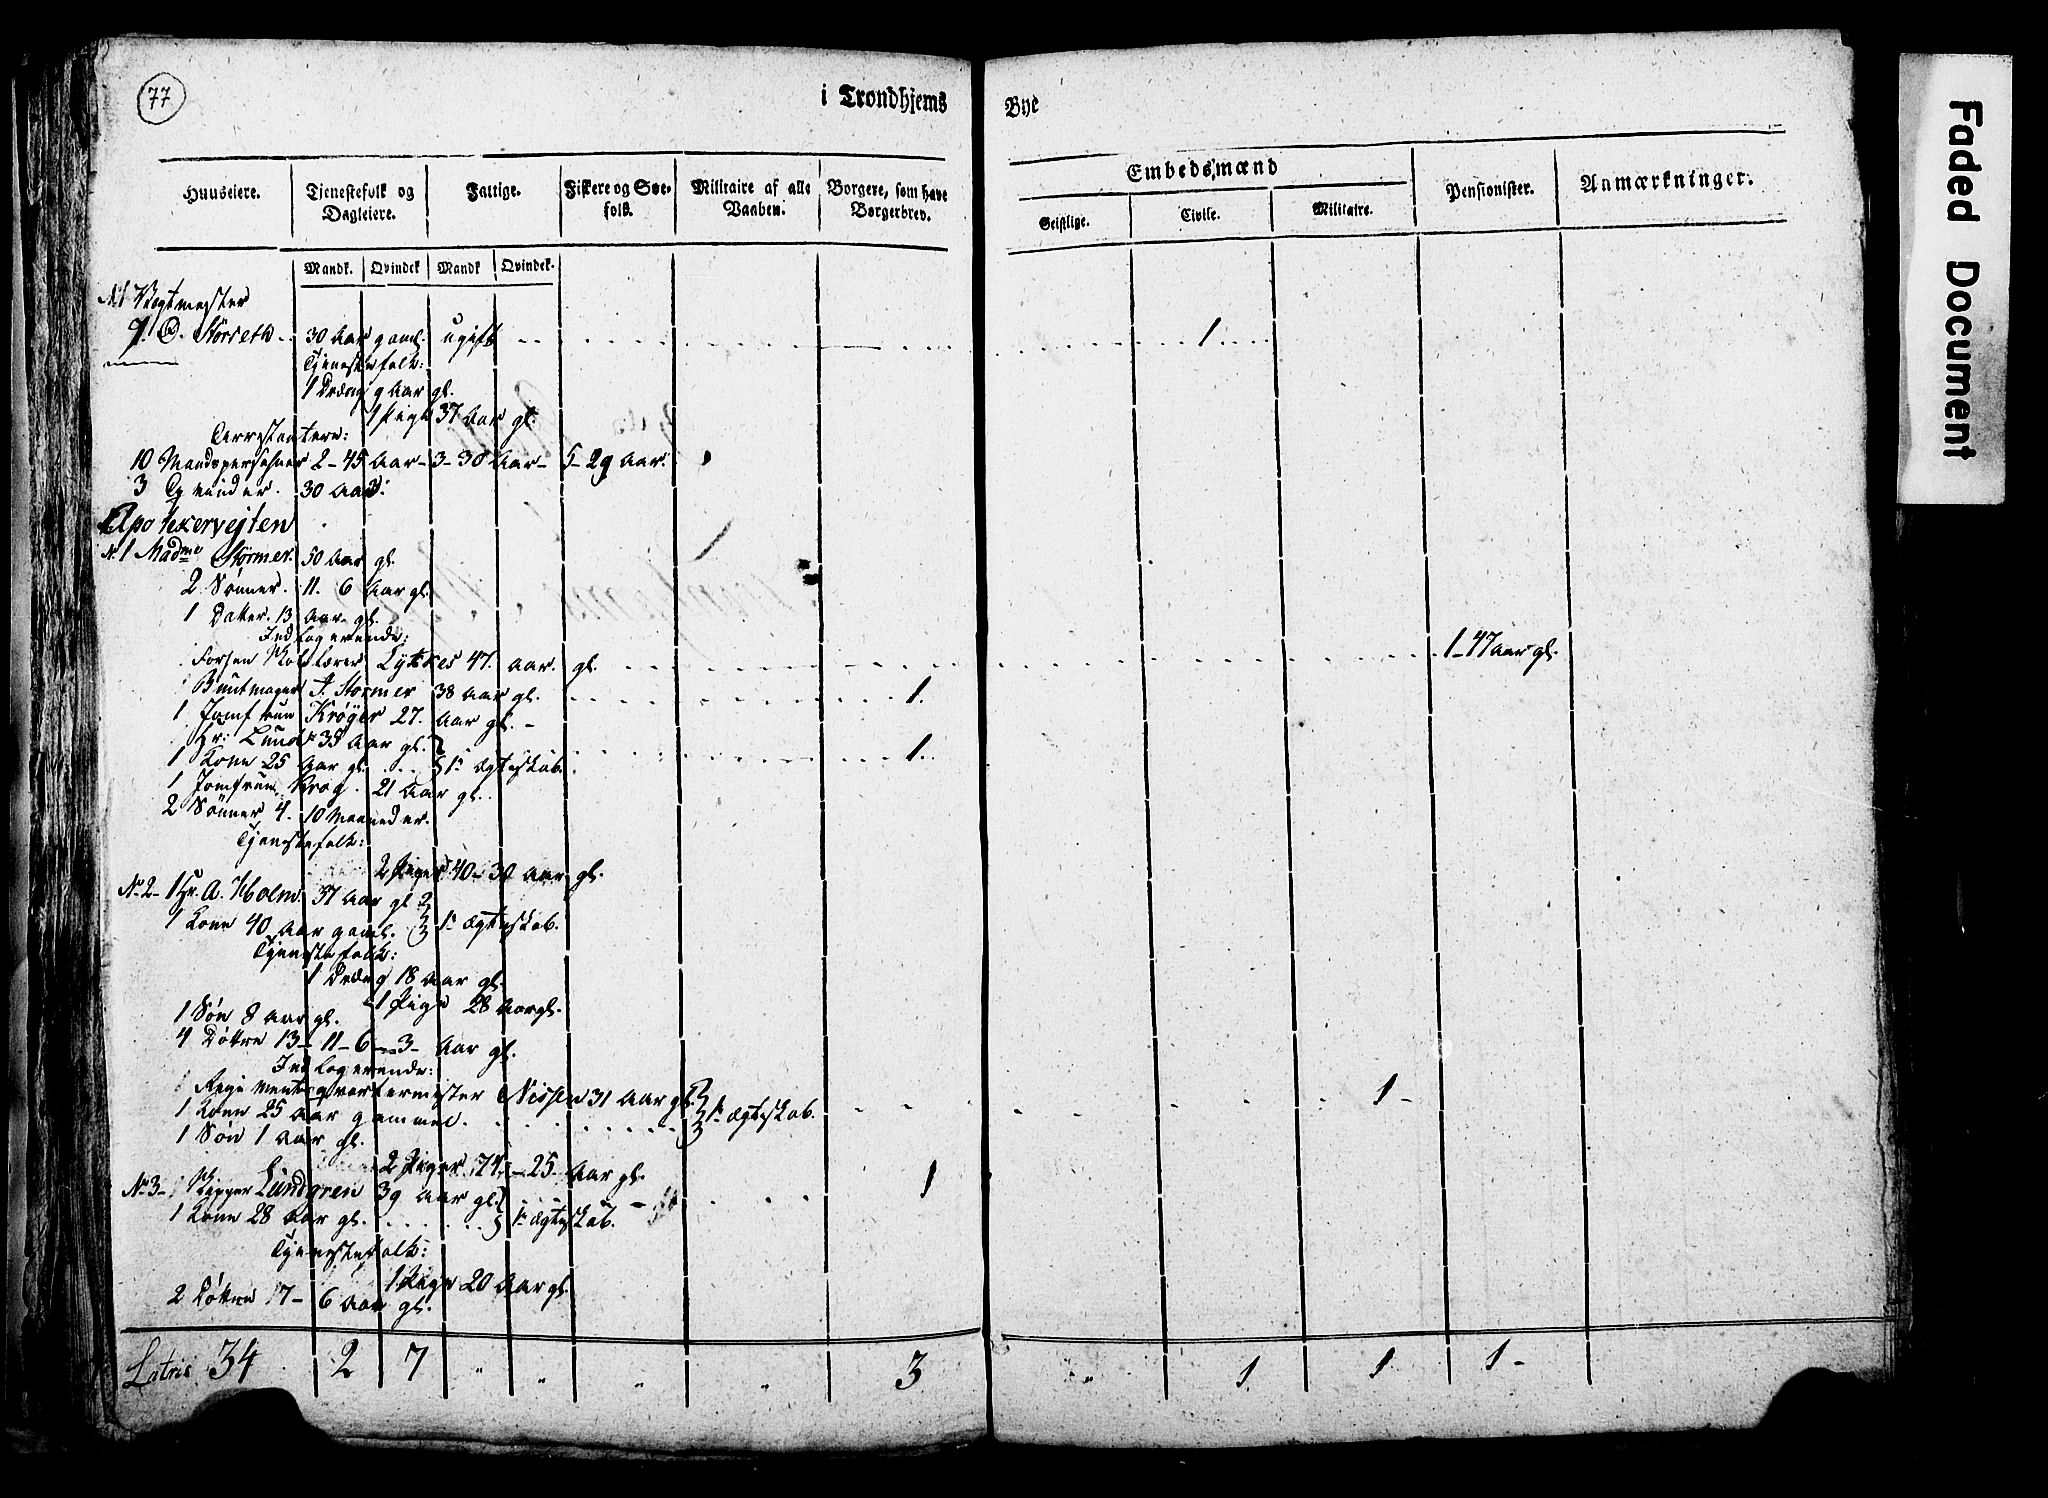 77
i Trondhjems Bye
Huuseiere. Tienestefolk og Dagleiere. Fattige. Fiskere og Søefolk. Militaire af alle Vaaben. Borgere, som have Borgerbrev. Embedsmænd Pensionister. Anmærkninger.
Geistlige. Civile. Militaire.
Mandk. Qvindek Mandk Qvindek.
N1 Vagtmester
Størseth 30 Aar gaml. ugift 1
Tjenestefolk:
1 Dreng 9 Aar gl.
1 Pige 37 Aar gl.
Arrestantere:
10 Mandspersohner 2 - 45 Aar - 3 - 30 Aar - 5 - 29 Aar.
3 Qvinder. 30 Aar.
Apothekervejten
N. 1 Madme Størmer. 50 Aar gl.
2 Sønner. 11. 6 Aar gl.
1 Datter. 13 Aar gl.
Indlogerende:
Forhen Lytkes 47. Aar. gl. 1 - 47 aar gl.
Buntmager Størmer 38 Aar gl. 1.
1 Jomfrue Krøyer 27. Aar gl. -
Hr: Lund 35 Aar gl.
1 Kone 25 Aar gl. 1te Ægteskab. 1.
1 Jomfrue Krog. 21 Aar gl.
2 Sønner 4. 10 Maaneder.
Tjenestefolk:
2 Piger 40 - 30 Aar gl.
No 2 - 1 Hr. A. Holm 37 Aar gl
1 Kone 40 Aar gaml. 1te Ægteskab.
Tjenestefolk:
1 Dreng 18 Aar gl.
1 Pige 28 Aar gl.
1 Søn 8 Aar gl.
4 Døttre 13 - 11 - 6 - 3 - Aar gl.
Indlogerende:
Regimentsqvartermester Nissen 31 Aar gl. 1 -
1 Kone 25 Aar gammel. 1te Ægteskab.
1 Søn 1 Aar gl.
2 Piger 24 - 25 Aar gl.
No 3 - Skipper Lundgren 39 Aar gl. 1
1 Kone 28 Aar gl. 1te Ægteskab.
Tjenestefolk:
1 Pige 20 Aar gl.
2 Døttre 7 - 6 Aar gl.
Latris 34 2 7 " " " " 3 " 1. 1. 1 -
Faded Document